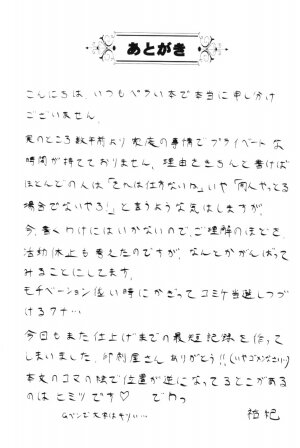 あとがき
こんにちは、いつもペラい本で本当に申し分け
ございません。
実のところ数年前より家庭の事情でプライベートな
時間が持てておりません。理由をきちんと書けば
ほとんどの人は「それは仕方ないね」いや「同人やっとる
場合でないやろ!」と言うような気はしますが、
今、書くわけにはいかないので、ご理解のほどを。
活動休止も考えたのですが、なんとかがんばって
みることにしてます。
モチベーション低い時にかぎってコミケ当選しつづ
けるワナ…
今回もまた仕上げまでの最短記録を作って
しまいました。印刷屋さんありがとう!!(いやゴメンなさい…)
本文のコマの絵で位置が逆になってるところがある
のはヒミツです♡ でわっ
Gペンで文字はキツい…